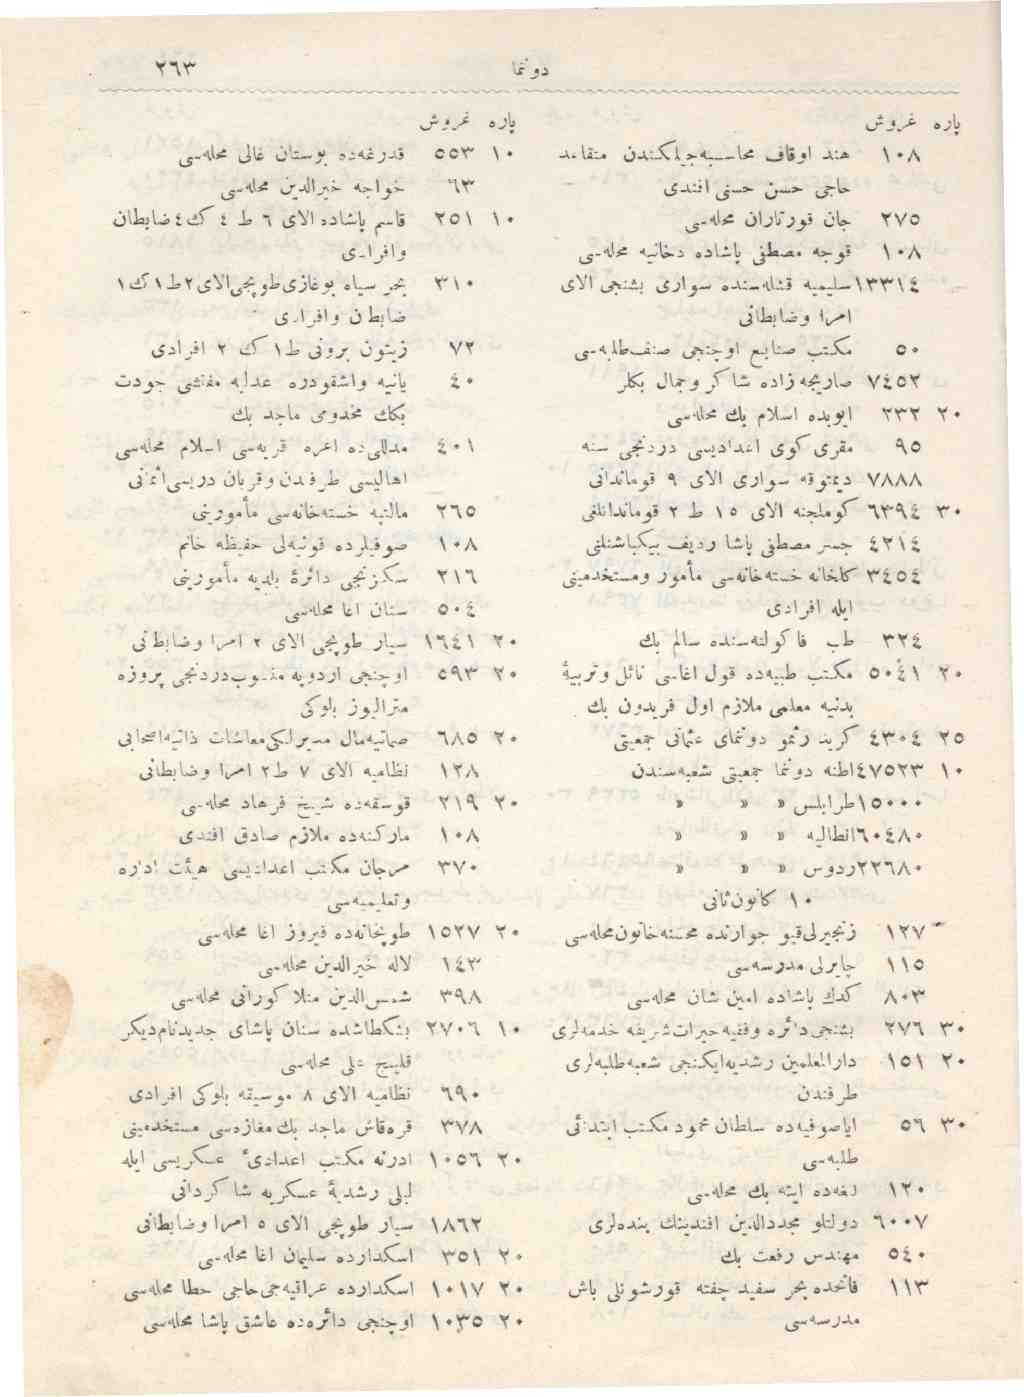 دوننما ٢٦٣
پاره غروش
١٠٨ هند اوقاف محاسبه‌جیلكندن متقاعد
حاجی حسن حسنی افندی
٢٧٥ جان قورتاران محله‌سی
١٠٨ قوجه مصطفی پاشاده دخانیه محله‌سی
١٣٣١٤ سلیمیه قشله‌سنده سواری بشنجی الای
امرا وضابطانی
٥٠ مكتب صنایع اوچنجی صنف طلبه‌سی
٧٤٥٢ صاریجه زاده شاكر وجمال بكلر
٢٠ ٢٣٢ ایوبده اسلام بك محله‌سی
٩٥ مقری كوی اعدادیسی دردنجی سنه
٧٨٨٨ دیمتوقه سواری الای ٩ قوماندانی
٣٠ ٦٣٩٤ كوملجنه الای ١٥ ط ٢ قوماندانلغی
٤٢١٤ جسر مصطفی پاشا ردیف بیكباشیلغی
٣٤٥٤ كلخانه خسته‌خانه‌سی مأمور ومستخدمینی
ایله افرادی
٣٢٤ طب فاكولته‌سنده سالم بك
٢٠ ٥٠٤١ مكتب طبیه‌ده قول اغاسی نائل وتربیهٔ
بدنیه معلمی ملازم اول فریدون بك
٢٥ ٤٣٠٤ كرید رسمو دوننمای عثمانی جمعیتی
١٠ ٤٧٥٢٣ اطنه دوننما جمعیتی شعبه‌سندن
١٥٠٠٠ طرابلس » » »
٦٠٤٨٠ انطالیه » » »
٢٢٦٨٠ ردوس » » »
١٠ كانون‌ثانی
١٢٧ زنجیرلی‌قیو جوارنده محسنه‌خاتون محله‌سی
١١٥ چایرلی مدرسه‌سی
٨٠٣ كدك پاشاده امین شان محله‌سی
٣٠ ٢٧٦ بشنجی دائره وقفیه خیرات شریفه خدمه‌لری
٢٠ ١٥١ دارالمعلمین رشدیه ایكنجی شعبه طلبه‌لری
طرفندن
٣٠ ٥٦ ایاصوفیه‌ده سلطان محمود مكتب ابتدائی
طلبه‌سی
١٢٠ لغه‌ده ایته بك محله‌سی
٦٠٠٧ دولتلو مجددالدین افندینك بنده‌لری
٥٤٠ مهندس رفعت بك
١١٣ فاتحده بحر سفید چفته قورشونلی باش
مدرسه‌سی
پاره غروش
١٠ ٥٥٣ قدرغه‌ده بوستان غالی محله‌سی
٦٣ خواجه خیرالدین محله‌سی
١٠ ٢٥١ قاسم پاشاده الای ٦ ط ٤ ك ٤ ضابطان
وافرادی
٣١٠ بحر سیاه بوغازی طوپجی الای ٢ ط ١ ك ١
ضابطان وافرادی
٧٢ زیتون برونی ط ١ ك ٢ افرادی
٤٠ یانیه واشقودره عدلیه مفتشی جودت
بكك مخدومی ماجد بك
٤٠١ مدللی‌ده اغره قریه‌سی اسلام محله‌سی
اهالیسی طرفندن وقربان دریسی اثمانی
٢٦٥ مالتپه خسته‌خانه‌سی مأمورینی
١٠٨ صوفیلرده قونیه‌لی حفیظه خانم
٢١٦ سكزنجی دائرهٔ بلدیه مأمورینی
٥٠٤ سنان اغا محله‌سی
٢٠ ١٦٤١ سیار طوپجی الای ٢ امرا وضابطانی
٢٠ ٥٩٣ اوچنجی اردویه منسوب دردنجی پروزه
مترالیوز بلوكی
٢٠ ٦٨٥ صماتیه مال مدیرلكی معاشات ذاتیه اصحابی
١٢٨ نظامیه الای ٧ ط ٢ امرا وضابطانی
٢٠ ٢١٩ قوسقه‌ده شیخ فرهاد محله‌سی
١٠٨ ماركنه‌ده ملازم صادق افندی
٣٧٠ مرجان مكتب اعدادیسی هیئت اداره
وتعلیمیه‌سی
٢٠ ١٥٢٧ طوپخانه‌ده فیروز اغا محله‌سی
١٤٣ لاله خیرالدین محله‌سی
٣٩٨ شمس‌الدین منلا كورانی محله‌سی
١٠ ٢٧٠٦ بشكطاشده سنان پاشای جدید نام دیكر
قلیج علی محله‌سی
٦٩٠ نظامیه الای ٨ موسیقه بلوكی افرادی
٣٧٨ قره‌قاش ماجد بك مغازه‌سی مستخدمینی
٢٠ ١٠٥٦ ادرنه مكتب اعدادیٔ عسكریسی ایله
لیلی رشدیهٔ عسكریه شاكردانی
١٨٦٢ سیار طوپجی الای ٥ امرا وضابطانی
٢٠ ٣٥١ اسكدارده سلیمان اغا محله‌سی
٢٠ ١٠١٧ اسكدارده عراقیه‌جی حاجی حطا محله‌سی
٢٠ ١٠٣٥ اوچنجی دائره‌ده عاشق پاشا محله‌سی